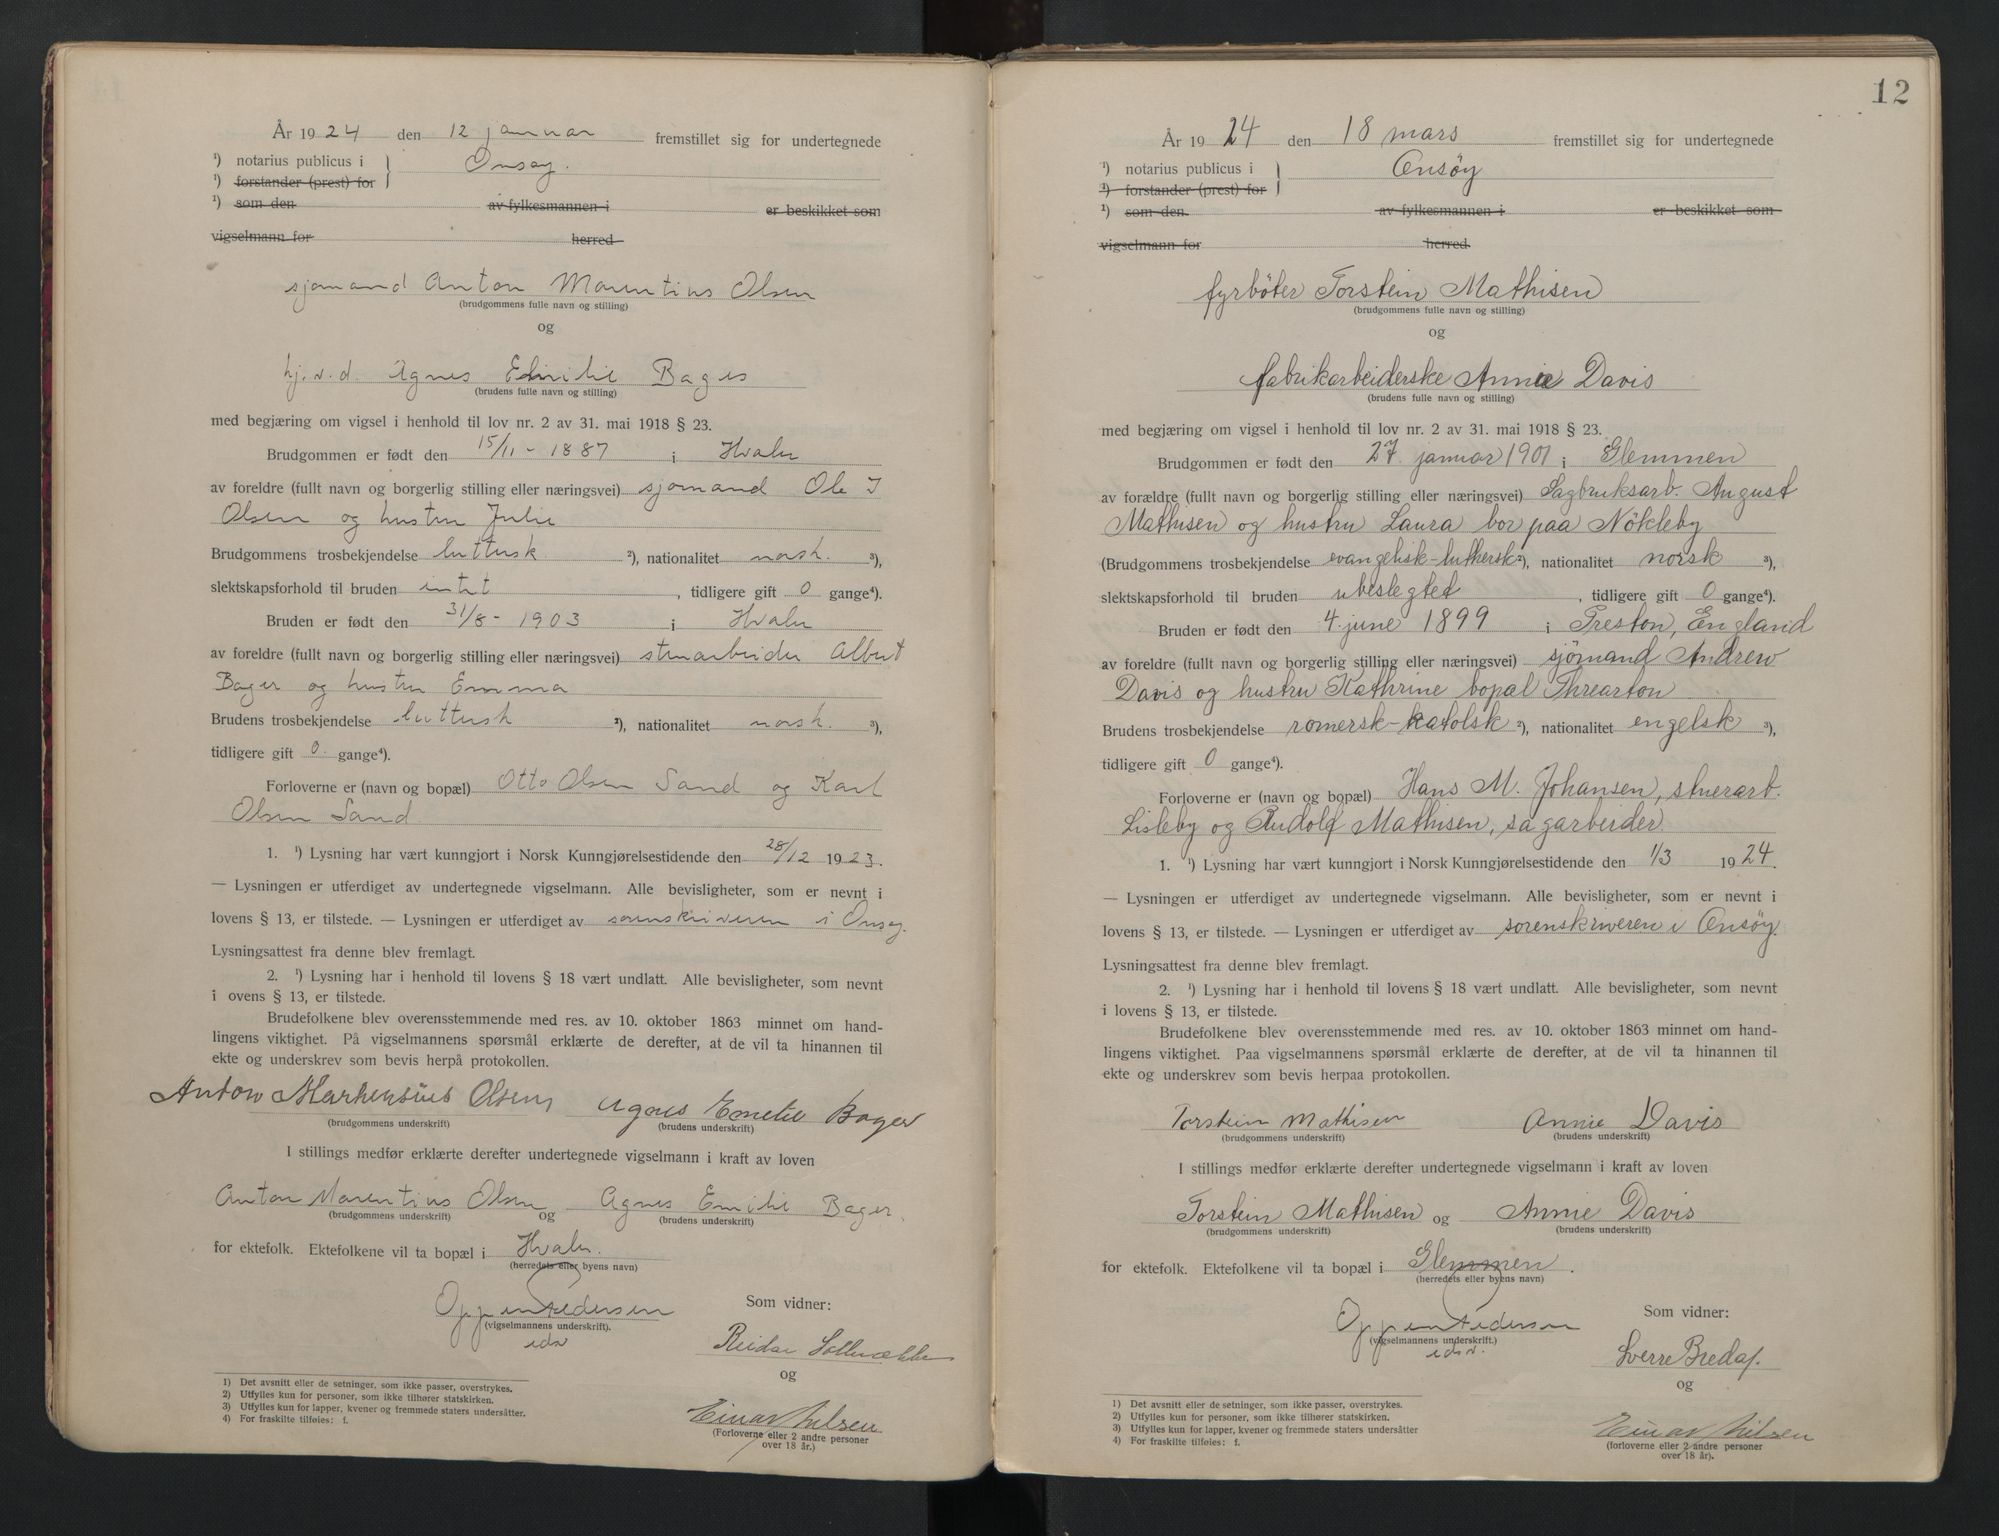 År 1924 den 12 januar fremstillet sig for undertegnede
¹) notarius publicus i } Onsøy.
¹) forstander (prest) for
¹) som den av fylkesmannen i er beskikket som
vigselmann for herred
sjømand Anton Marentius Olsen
(brudgommens fulle navn og stilling)
og
hj.v.d. Agnes Emilie Bager
(brudens fulle navn og stilling)
med begjæring om vigsel i henhold til lov nr. 2 av 31. mai 1918 § 23.
Brudgommen er født den 15/11 - 1887 i Hvaler
av foreldre (fullt navn og borgerlig stilling eller næringsvei) sjømand Ole J
Olsen og hustru Julie
Brudgommens trosbekjendelse luttersk ²), nationalitet norsk. ³),
slektskapsforhold til bruden intet, tidligere gift 0 gange⁴).
Bruden er født den 31/8 - 1903 i Hvaler
av foreldre (fullt navn og borgerlig stilling eller næringsvei) stenarbeider Albert
Bager og hustru Emma
Brudens trosbekjendelse luttersk ²), nationalitet norsk. ³),
tidligere gift 0. gange⁴).
Forloverne er (navn og bopæl) Otto Olsen Sand og Karl
Olsen Sand.
1. ¹) Lysning har vært kunngjort i Norsk Kunngjørelsestidende den 28/12 1923.
— Lysningen er utferdiget av undertegnede vigselmann. Alle bevisligheter, som er nevnt i
lovens § 13, er tilstede. — Lysningen er utferdiget av sorenskriveren i Onsøy.
Lysningsattest fra denne blev fremlagt.
2. ¹) Lysning har i henhold til lovens § 18 vært undlatt. Alle bevisligheter, som nevnt
i ovens § 13, er tilstede.
Brudefolkene blev overensstemmende med res. av 10. oktober 1863 minnet om hand-
lingens viktighet. På vigselmannens spørsmål erklærte de derefter, at de vil ta hinannen til
ekte og underskrev som bevis herpå protokollen.
Anton Olsen Agnes Emelie Bager
(brudgommens underskrift) (brudens underskrift)
I stillings medfør erklærte derefter undertegnede vigselmann i kraft av loven
Anton Marentius Olsen og Agnes Emilie Bager.
(brudgommens underskrift) (brudens underskrift)
for ektefolk. Ektefolkene vil ta bopæl i Hvaler.
(herredets eller byens navn)
Oppen Pedersen
(vigselmannens underskrift).
Som vidner:
Reidar
og
Einar Nilsen
(Forloverne eller 2 andre personer
over 18 år.)
1) Det avsnitt eller de setninger, som ikke passer, overstrykes.
2) Utfylles kun for personer, som ikke tilhører statskirken.
3) Utfylles kun for lapper, kvener og fremmede staters undersåtter.
4) For fraskilte tilføies: f.
12
År 1924 den 18 mars fremstillet sig for undertegnede
¹) notarius publicus i } Onsøy
¹) forstander (prest) for
¹) som den av fylkesmannen i er beskikket som
vigselmann for herred.
fyrbøter Torstein Mathisen
(brudgommens fulle navn og stilling)
og
fabrikarbeiderske Annie Davis
(brudens fulle navn og stilling)
med begjæring om vigsel i henhold til lov nr. 2 av 31. mai 1918 § 23.
Brudgommen er født den 27. januar 1901 i Glemmen
av forældre (fullt navn og borgerlig stilling eller næringsvei) Sagbruksarb. August
Mathisen og hustru Laura bor paa Nökleby
(Brudgommens trosbekjendelse evangelisk-luthersk ²), nationalitet norsk ³),
slektskapsforhold til bruden ubeslegtet, tidligere gift 0 gange⁴).
Bruden er født den 4. june 1899 i Preston, England
av foreldre (fullt navn og borgerlig stilling eller næringsvei) sjømand Andrew
Davis og hustru Kathrine bopæl Threarton
Brudens trosbekjendelse romersk-katolsk ²), nationalitet engelsk ³),
tidligere gift 0 gange⁴).
Forloverne er (navn og bopæl) Hans M. Johansen, stuerarb.
Lisleby og Rudolf Mathisen, sagarbeider.
1. ¹) Lysning har vært kunngjort i Norsk Kunngjørelsestidende den 1/3 1924.
— Lysningen er utferdiget av undertegnede vigselmann. Alle bevisligheter, som er nevnt i
lovens § 13, er tilstede. — Lysningen er utferdiget av sorenskriveren i Onsöy.
Lysningsattest fra denne blev fremlagt.
2. ¹) Lysning har i henhold til lovens § 18 vært undlatt. Alle bevisligheter, som nevnt
i lovens § 13, er tilstede.
Brudefolkene blev overensstemmende med res. av 10. oktober 1863 minnet om hand-
lingens viktighet. Paa vigselmannens spørsmål erklærte de derefter, at de vil ta hinannen til
ekte og underskrev som bevis herpaa protokollen.
Torstein Mathisen Annie Davis
(brudgommens underskrift) (brudens underskrift)
I stillings medfør erklærte derefter undertegnede vigselmann i kraft av loven
Torstein Mathisen og Annie Davis
(brudgommens underskrift) (brudens underskrift)
for ektefolk. Ektefolkene vil ta bopæl i Glemmen.
(herredets eller byens navn)
Oppen Pedersen
(vigselmannens underskrift.)
Som vidner:
Sverre
og
Einar Nilsen
(forloverne eller 2 andre personer
over 18 år).
1) Det avsnitt eller de setninger, som ikke passer, overstrykes.
2) Utfylles kun for personer, som ikke tilhører statskirken.
3) Utfylles kun for lapper, kvener og fremmede staters undersåtter
4) For fraskilte tilføies: f.